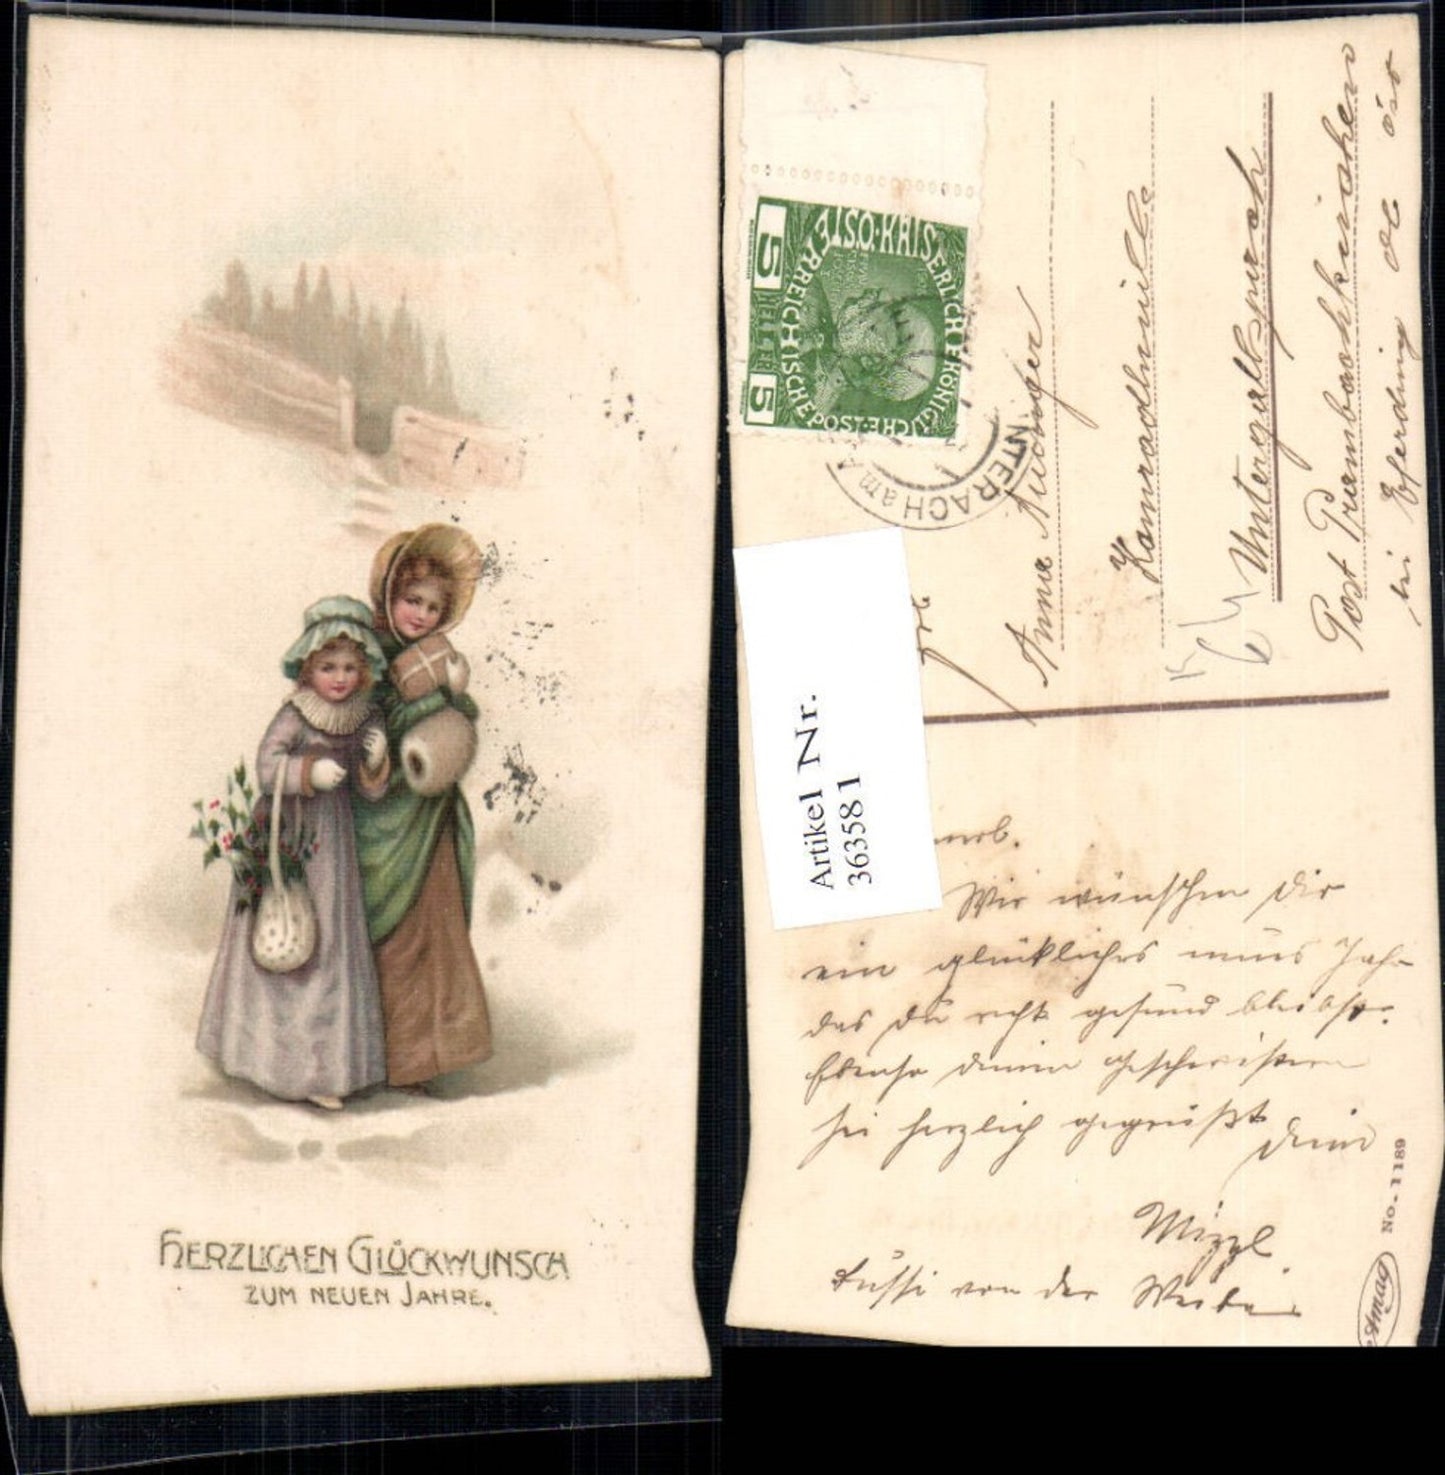 HERZLICHEN GLÜCKWUNSCH
ZUM NEUEN JAHRE.
5 HELLER 5
KAISERLICH KÖNIGLICHE
ÖSTERREICHISCHE POST
NTERACH am A
Anna
Post Prambachkirchen
bei Eferding Ob öst
Artikel Nr.
363581
Wir wünschen Dir
ein glückliches neues Jahr
das Du recht gesund bleibst.
Ebenso Deinen Geschwistern
sei herzlich gegrüßt Deine
Mizzl
Bussi von der
No. 1189
Amag